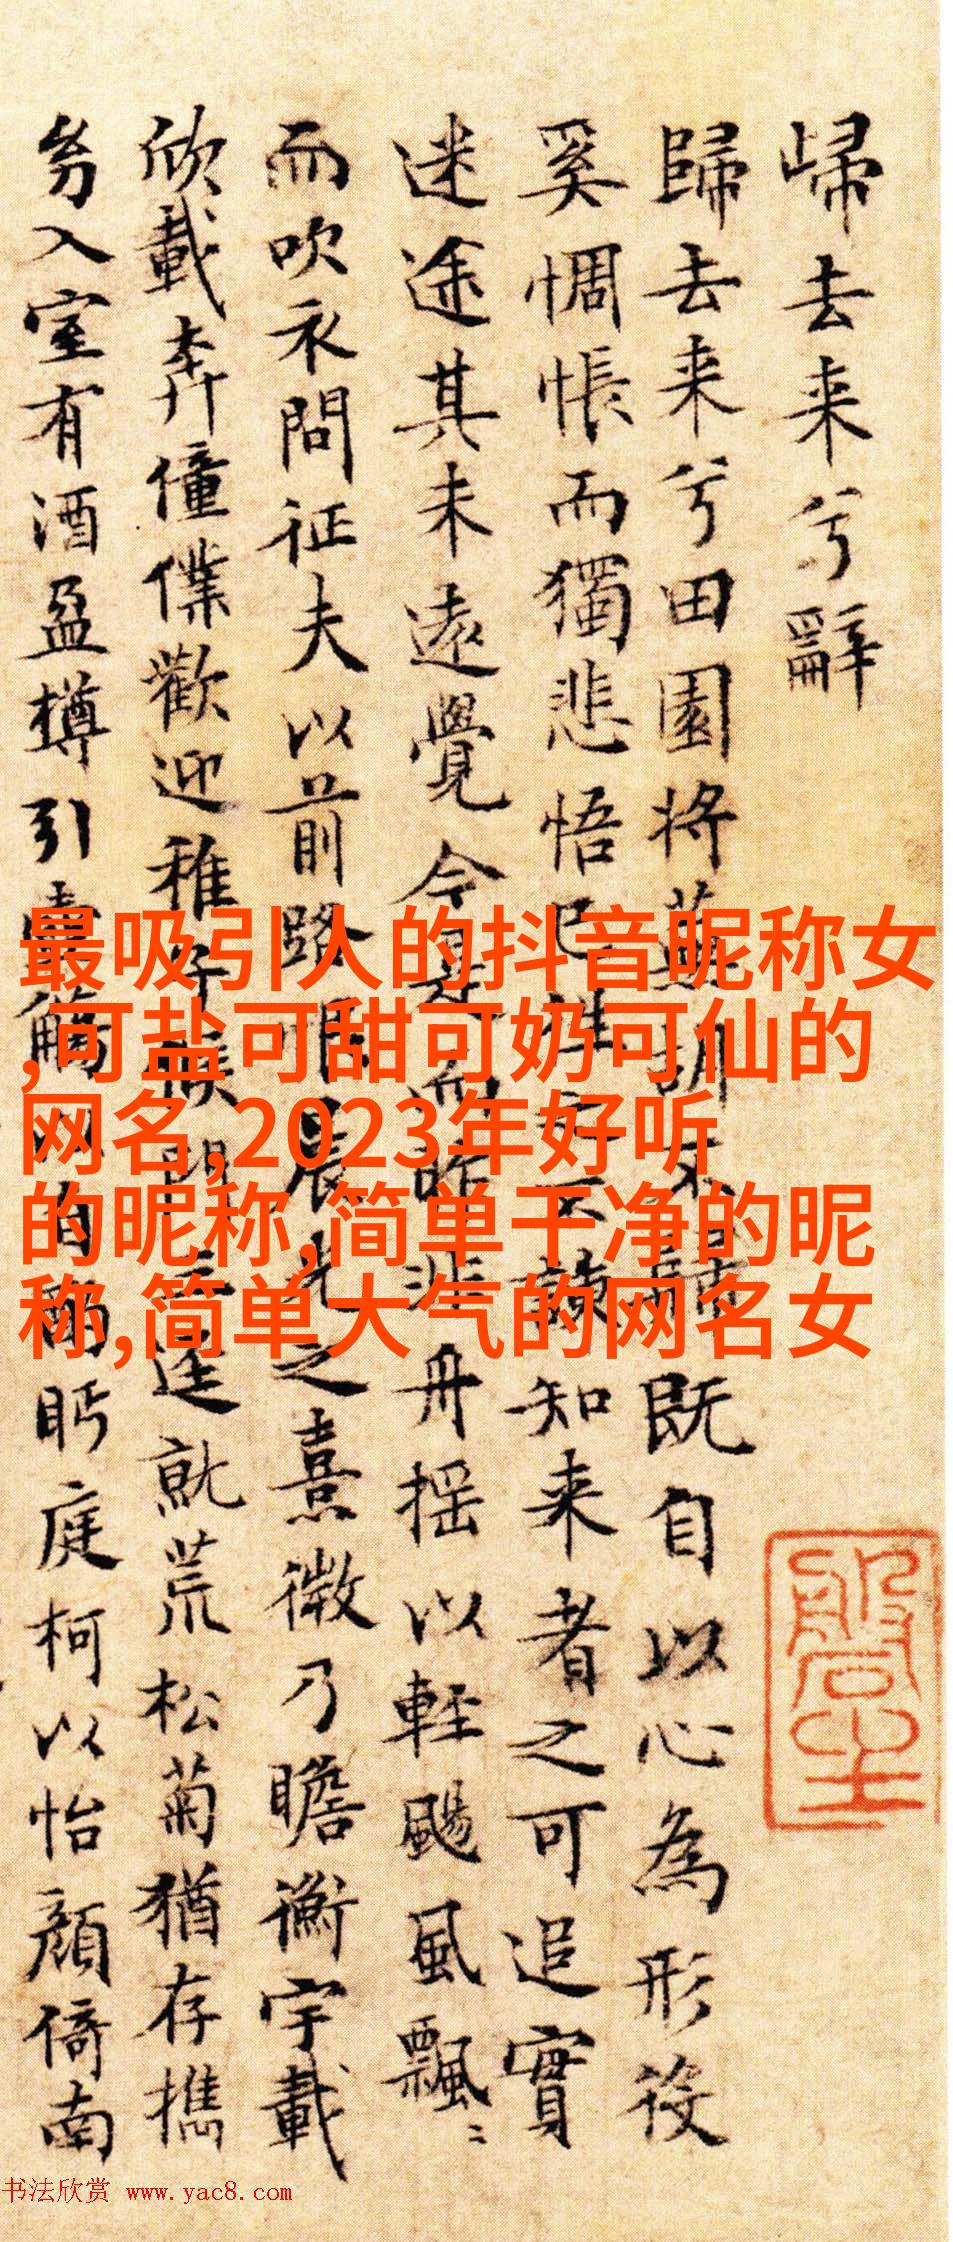 歸去来兮辭
歸去来兮田園将蕪胡不歸既自以心為形役
奚惆悵而獨悲悟已往之不諫知来者之可追實
迷途其未遠覺今是而昨非舟摇以輕颺風飄〻
而吹衣問征夫以前路恨晨光之熹微乃瞻衡宇載
欣載奔僮僕歡迎稚子候門三逕就荒松菊猶存携
幼入室有酒盈樽引壺觴以自酌眄庭柯以怡顔倚南
最吸引人的抖音昵称女
,可盐可甜可奶可仙的
网名,2023年好听
的昵称,简单干净的昵
称,简单大气的网名女
书法欣赏 www.yac8.com